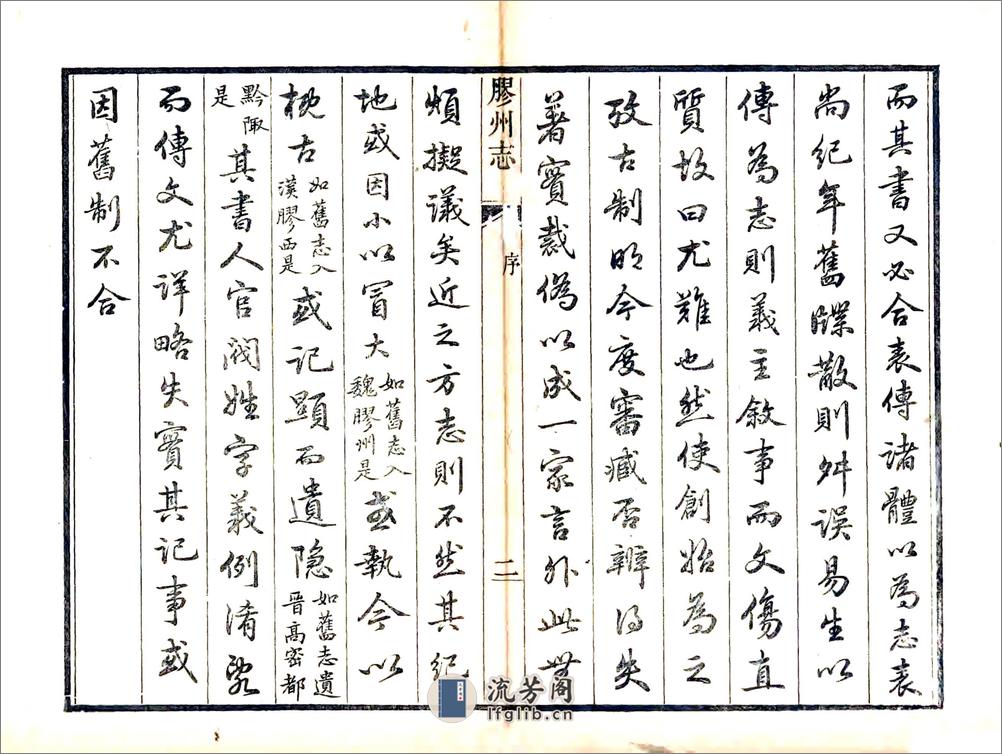 而其書又必合表傳諸體以為志表
尚紀年舊牒散則舛誤易生以
傳為志則義主敘事而文傷直
質故曰尤難也然使創始為之
攷古制明今度審臧否辨得失
著實裁偽以成一家言外此無
煩擬議矣近之方志則不然其紀
地或因小以冒大如舊志入魏膠州是或執今以
枕古如舊志入漢膠西是或記顯而遺隐如舊志遺晉高密都
黔陬是其書人官閥姓字義例淆亂
而傳文尤詳略失實其記事或
因舊制不合
膠州志
序
二
流芳阁
lfglib.cn